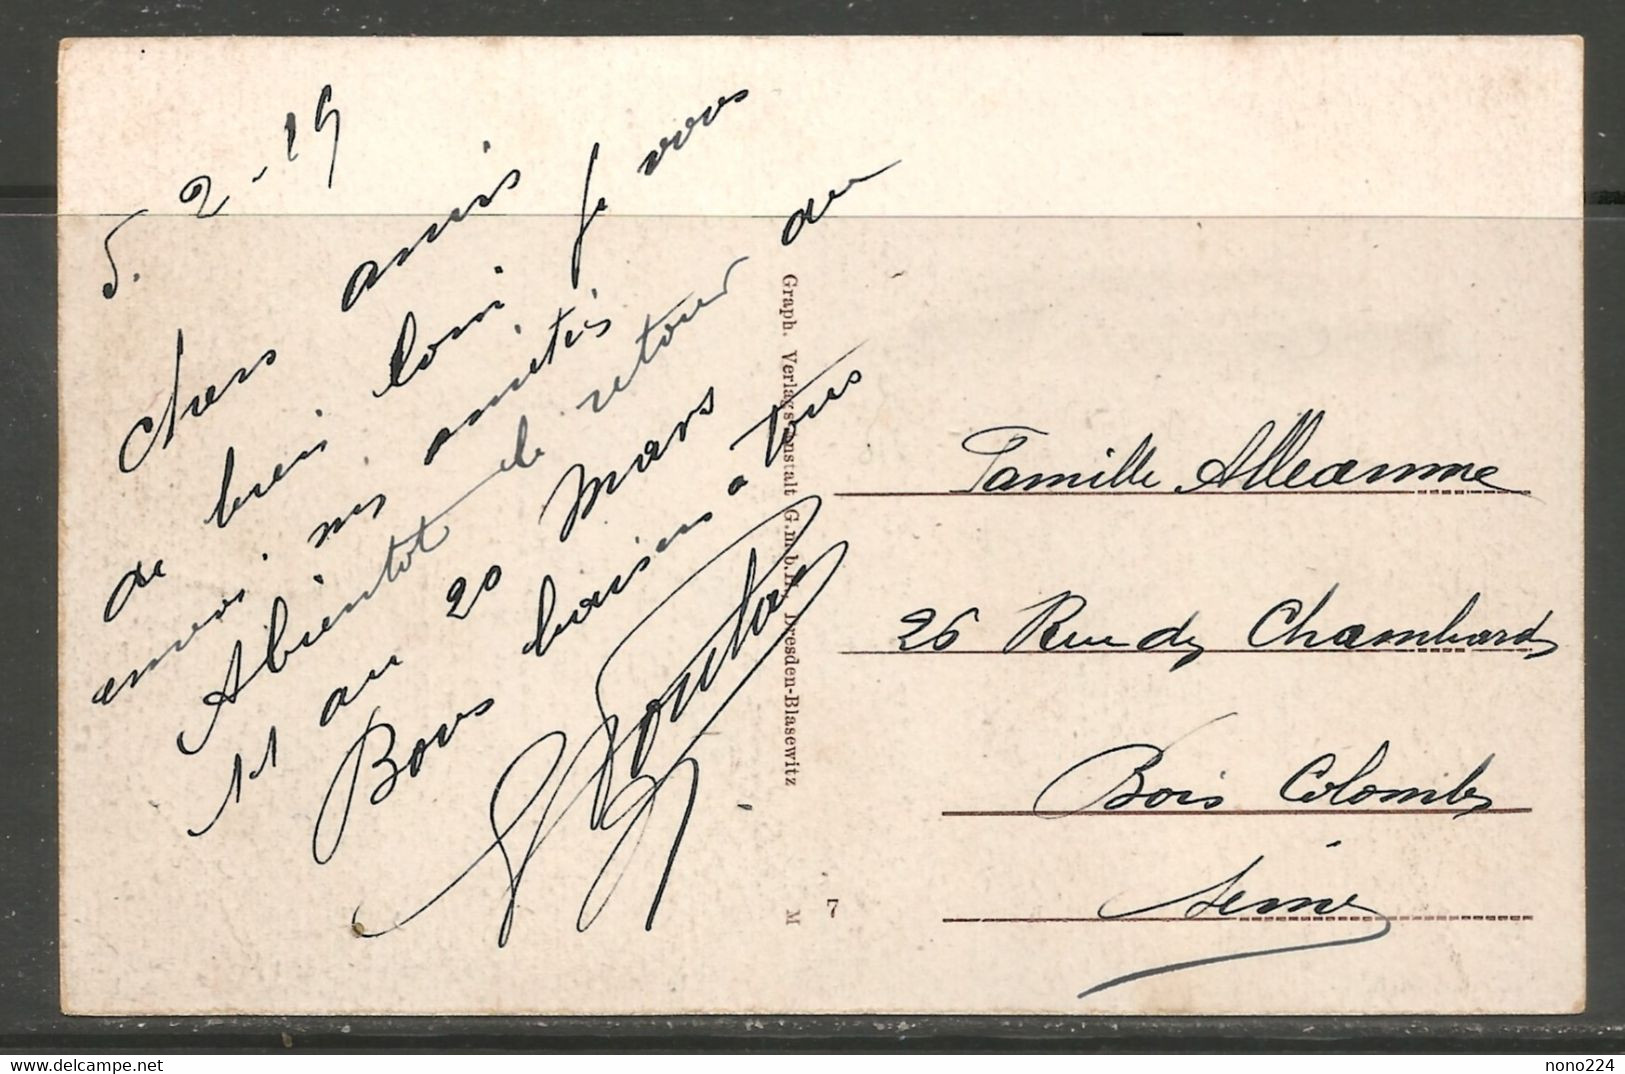 5. 2 - 19
chers amis
de bien loin je vous
envoi mes amitiés
Abientot le retour du
11 au 20 Mars
Bons baisers à tous
Graph. Verlagsanstalt G.m.b.H., Dresden-Blasewitz
M
7
Famille Alleaume
26 Rue des Chambards
Bois Colombes
Seine
nono224